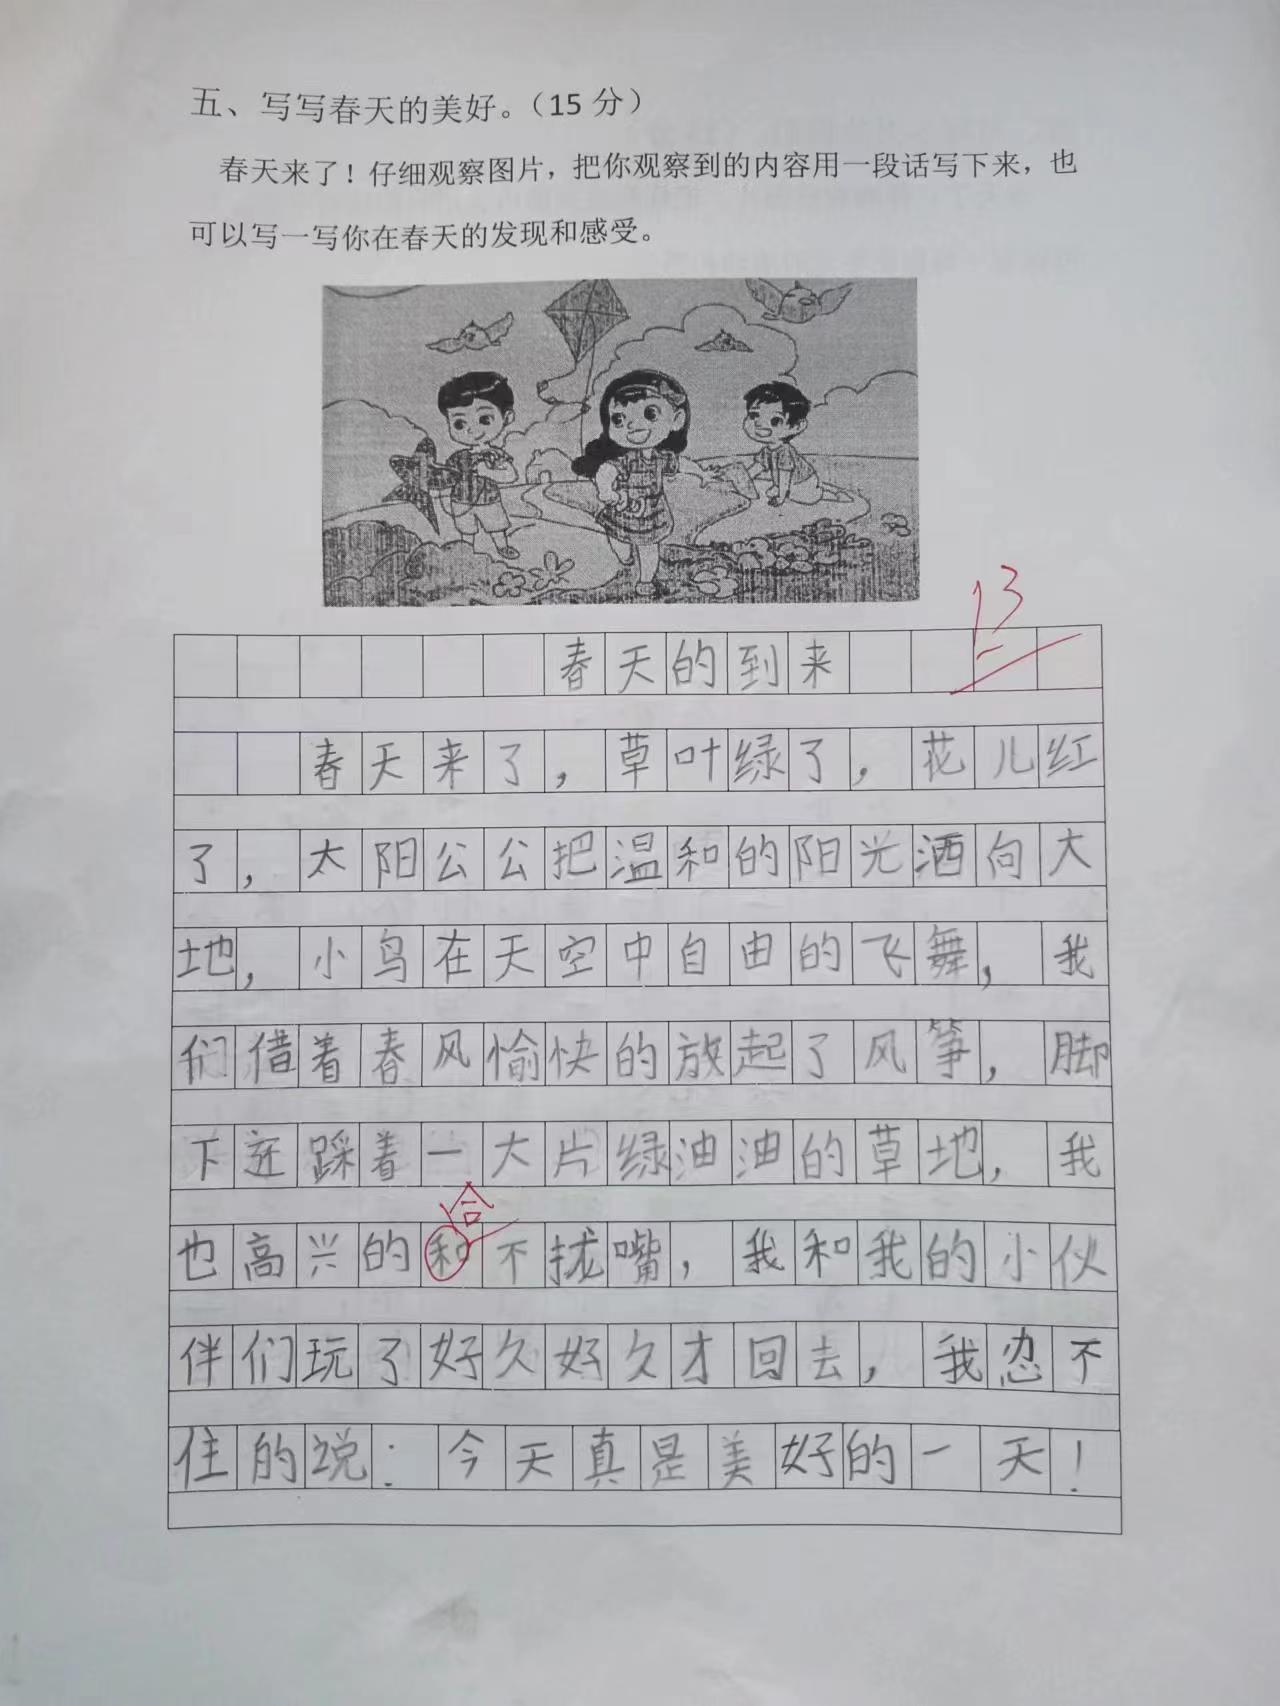 五、写写春天的美好。（15 分）
春天来了！仔细观察图片，把你观察到的内容用一段话写下来，也
可以写一写你在春天的发现和感受。
13
春天的到来
春天来了，草叶绿了，花儿红
了，太阳公公把温和的阳光洒向大
地，小鸟在天空中自由的飞舞，我
们借着春风愉快的放起了风筝，脚
下还踩着一大片绿油油的草地，我
合
也高兴的和不拢嘴，我和我的小伙
伴们玩了好久好久才回去，我忍不
住的说：今天真是美好的一天！